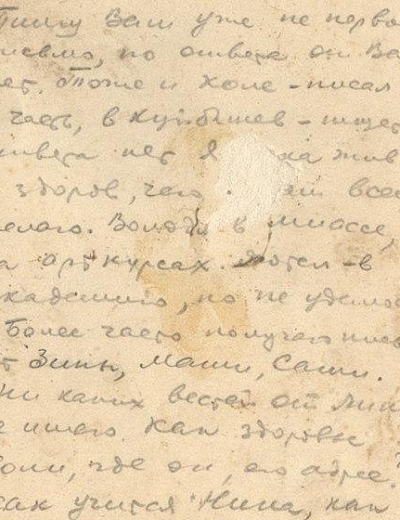 Пишу Вам уже не перво
письмо, но ответа от Ва
ет. Тоже и Коле - писал
часть, в Куйбышев - пишет
ответа нет. Я ка жив
здоров, чего всег
елаю. Володя в Миассе,
а арткурсах. Хотел - в
кадемию, но не удалос
Более часто получаю пись
т Зины, Маши, Саши.
Ни каких вестей от
е имею. Как здоровье
оли, где он, его адрес?
как учится Нина, как